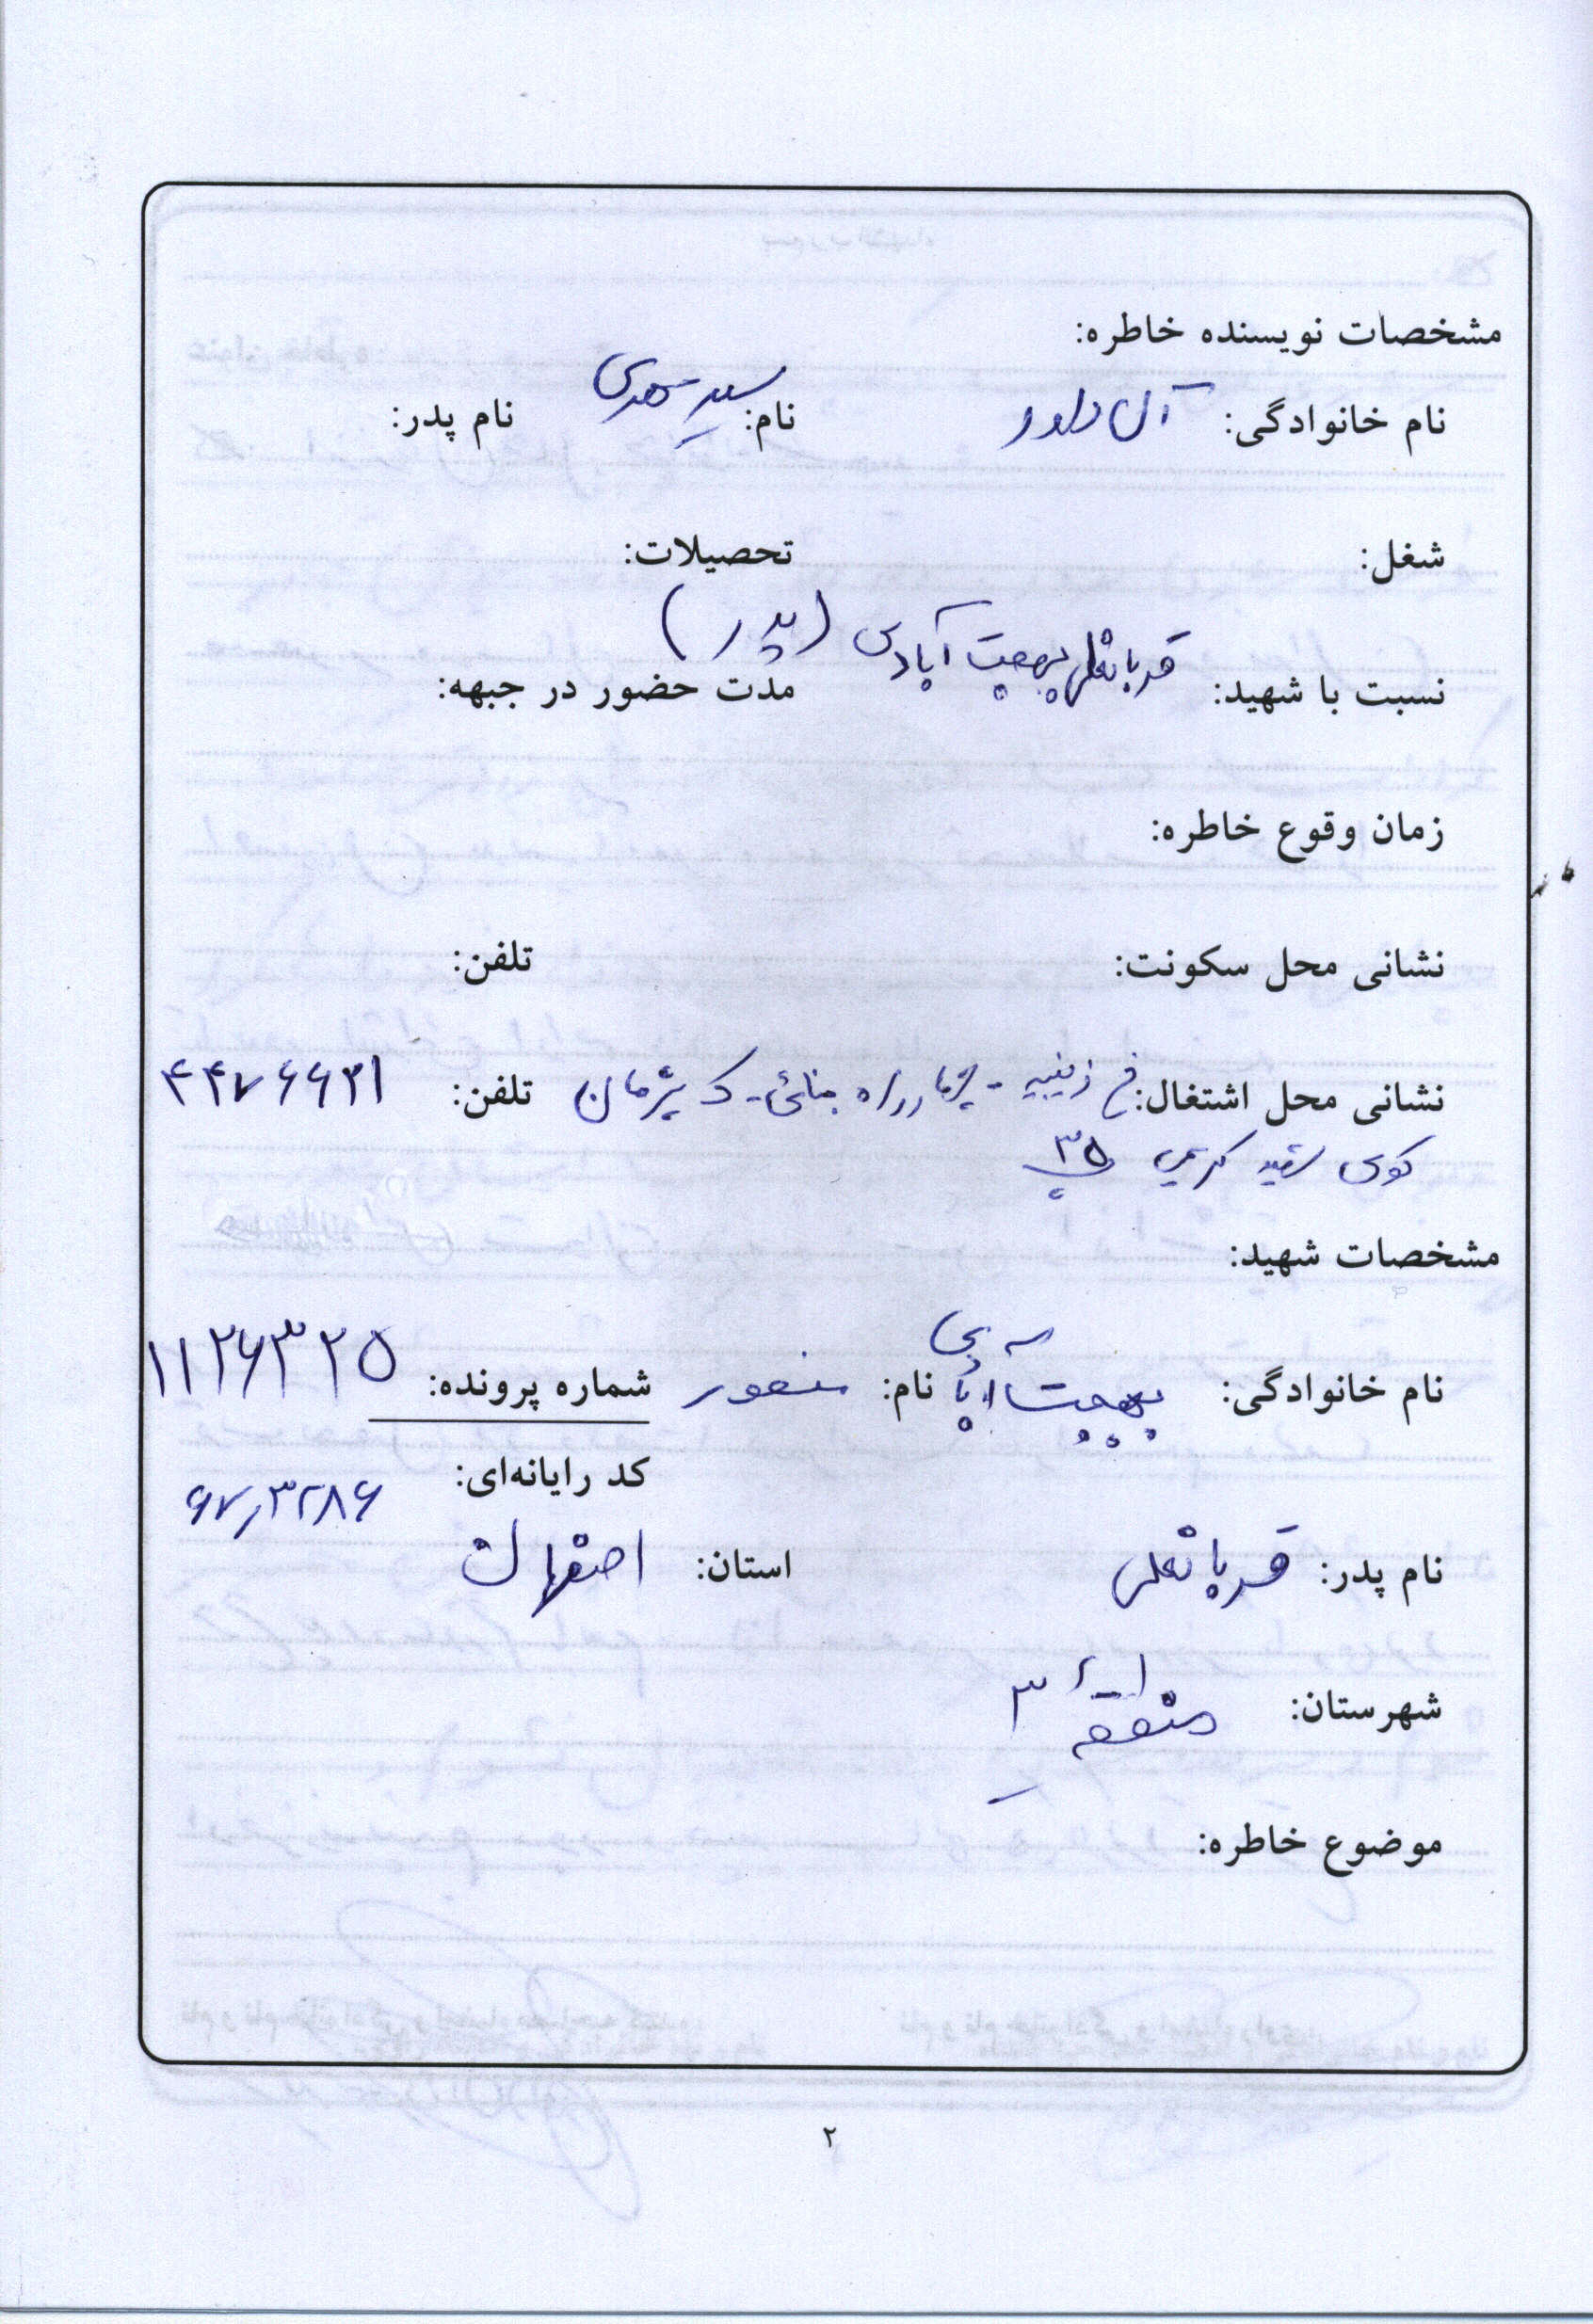 مشخصات نویسنده خاطره:
نام خانوادگی: آل داود نام: سید مهدی نام پدر:
شغل: تحصیلات:
نسبت با شهید: قربانعلی بهجت آبادی (پدر) مدت حضور در جبهه:
زمان وقوع خاطره:
نشانی محل سکونت: تلفن:
نشانی محل اشتغال: خ زینبیه - چهارراه - ک پژمان تلفن: ۴۴۷۶۶۳۱
کوی شهید کریمی پ ۳۵
مشخصات شهید:
نام خانوادگی: بهجت آبادی نام: منصور شماره پرونده: ۱۱۲۶۳۲۵
کد رایانه‌ای: ۶۷۰۳۲۸۶
نام پدر: قربانعلی استان: اصفهان
شهرستان: منطقه ۳
موضوع خاطره:
۲